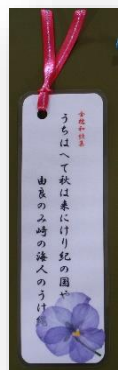 古釣和体集
うちはへて秋は来にけり紀の国や
由良のみ崎の海人のうけ